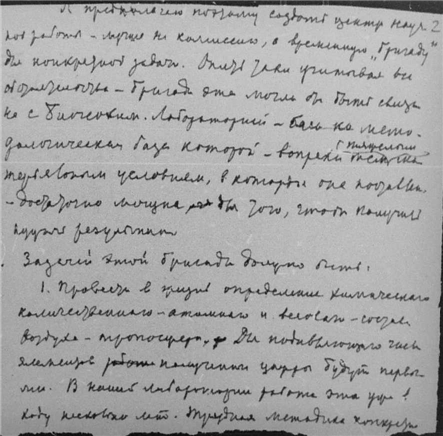 Я предполагаю поэтому создать центр науч-
ной работы - лучше не комиссию, а временную "бригаду"
для конкретной задачи. Опять таки учитывая все
обстоятельства - бригада эта могла бы быть связа-
на с Биогеохим. Лабораторией - мето-
дологическая база которой - вопреки тяжелым
условиям, в которые она поставлена
- достаточно мощна для того, чтобы получить
нужные результаты
Задачей этой бригады должно быть:
1. Провести в жизнь определение химического
количественного - атомного и весового - состава
воздуха - тропосферы. Для подавляющего числа
элементов полученные цифры будут первы-
ми. В нашей лаборатории работа эта уже в
ходу несколько лет. методика